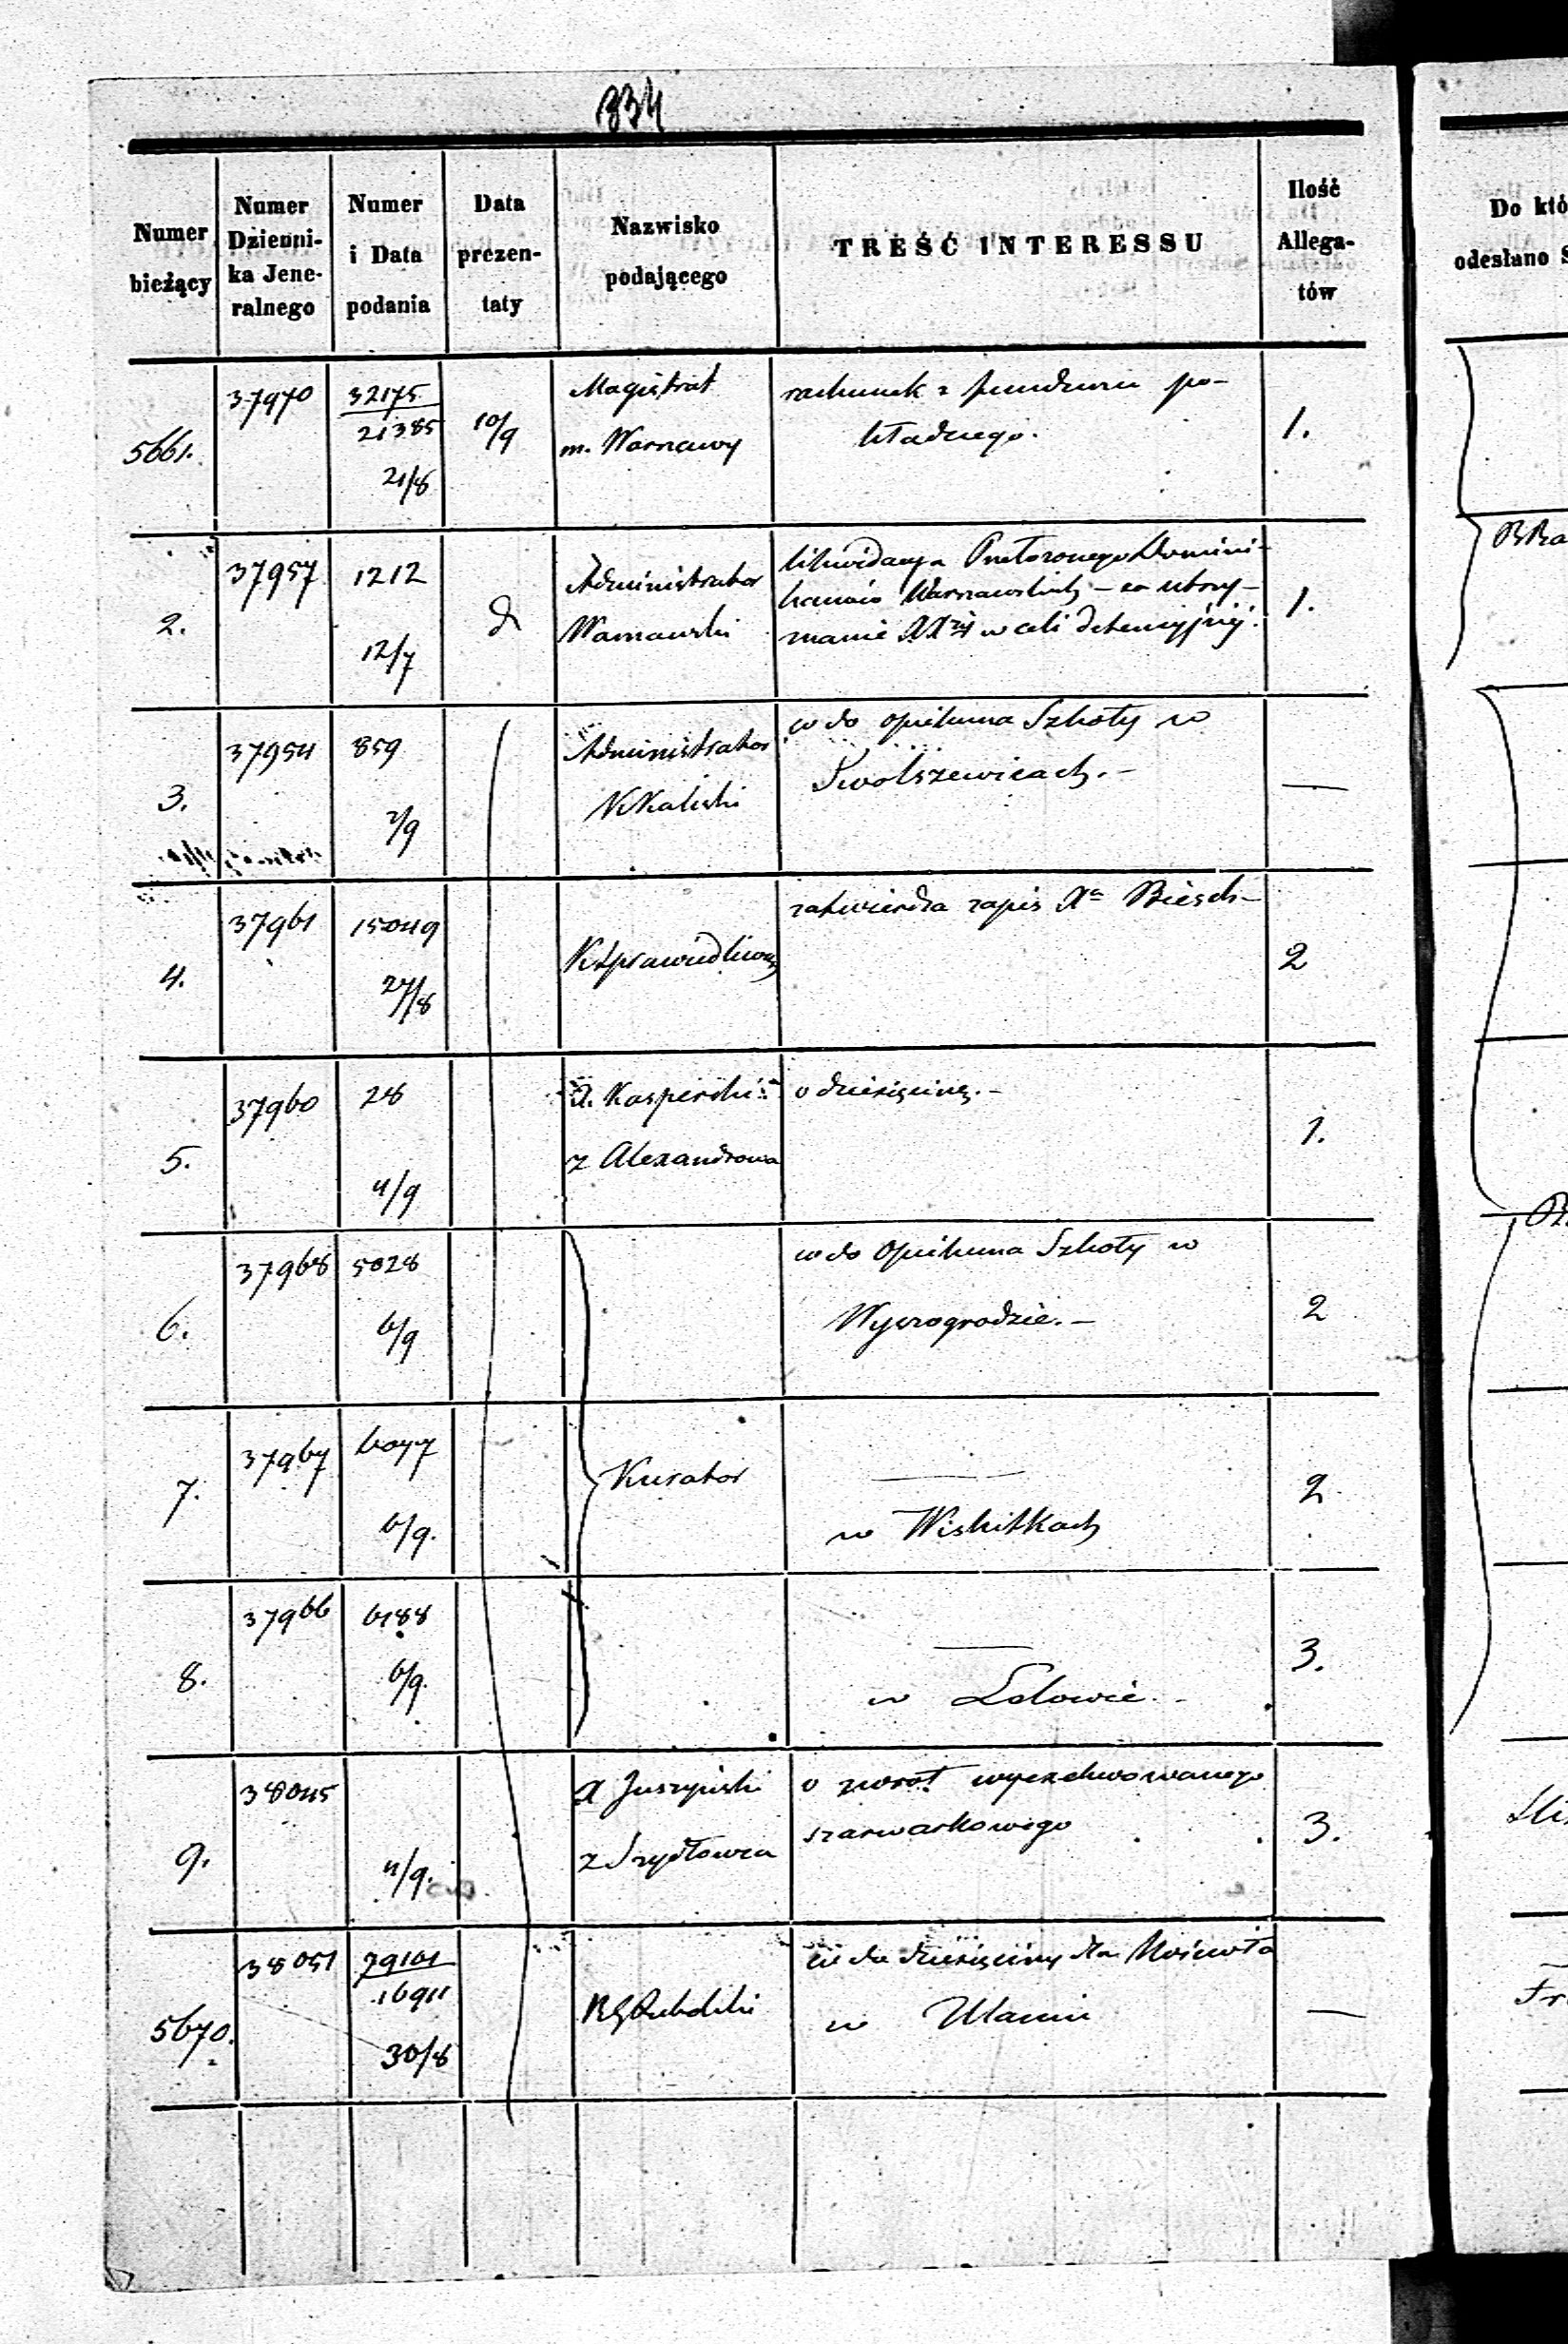 334
Numer bieżący
Numer Dzienni-
ka Jene-
ralnego
Numer
i Data
podania
Data
prezen-
taty
Nazwisko
podającego
TREŚĆ INTERESSU
Ilość
Allega-
tów
Do któ
odesłano S
5661.
37970
32175
21385
21/8
10/9
Magistrat
m. Warszawy
rachunek z funduszu po-
kładnego.
1.
2.
37957
1212
12/7
d
Administrator
Warszawski
likwidacya Domini-
kanów Warszawskich – za utrzy-
manie XXży w celi detencyjnej.
1.
3.
37954
859
7/9
Administrator
KKaliski
w do opiekuna Szkoły w
Swolszewicach. –
—
4.
37961
15049
27/8
KSprawiedliwoś
zatwierdza zapis Xa Biesch-
2
5.
37960
28
4/9
X. Kasperski
z Alexandrowa
o dziesięcinę. –
1.
6.
37968
5028
6/9
w do Opiekuna Szkoły w
Wyszogrodzie. –
2
7.
37967
6077
6/9.
Kurator
—
w Wiskitkach
2
8.
37966
6188
6/9.
—
w Lelowie. –
3.
9.
38045
4/9.
X Juszyński
z Szydłowca
o zwrot wyexekwowanego
szarwarkowego
3.
5670.
38051
79101
16911
30/8
RGRadomski
w do dziesięciny dla Kościoła
w Ulanie
—